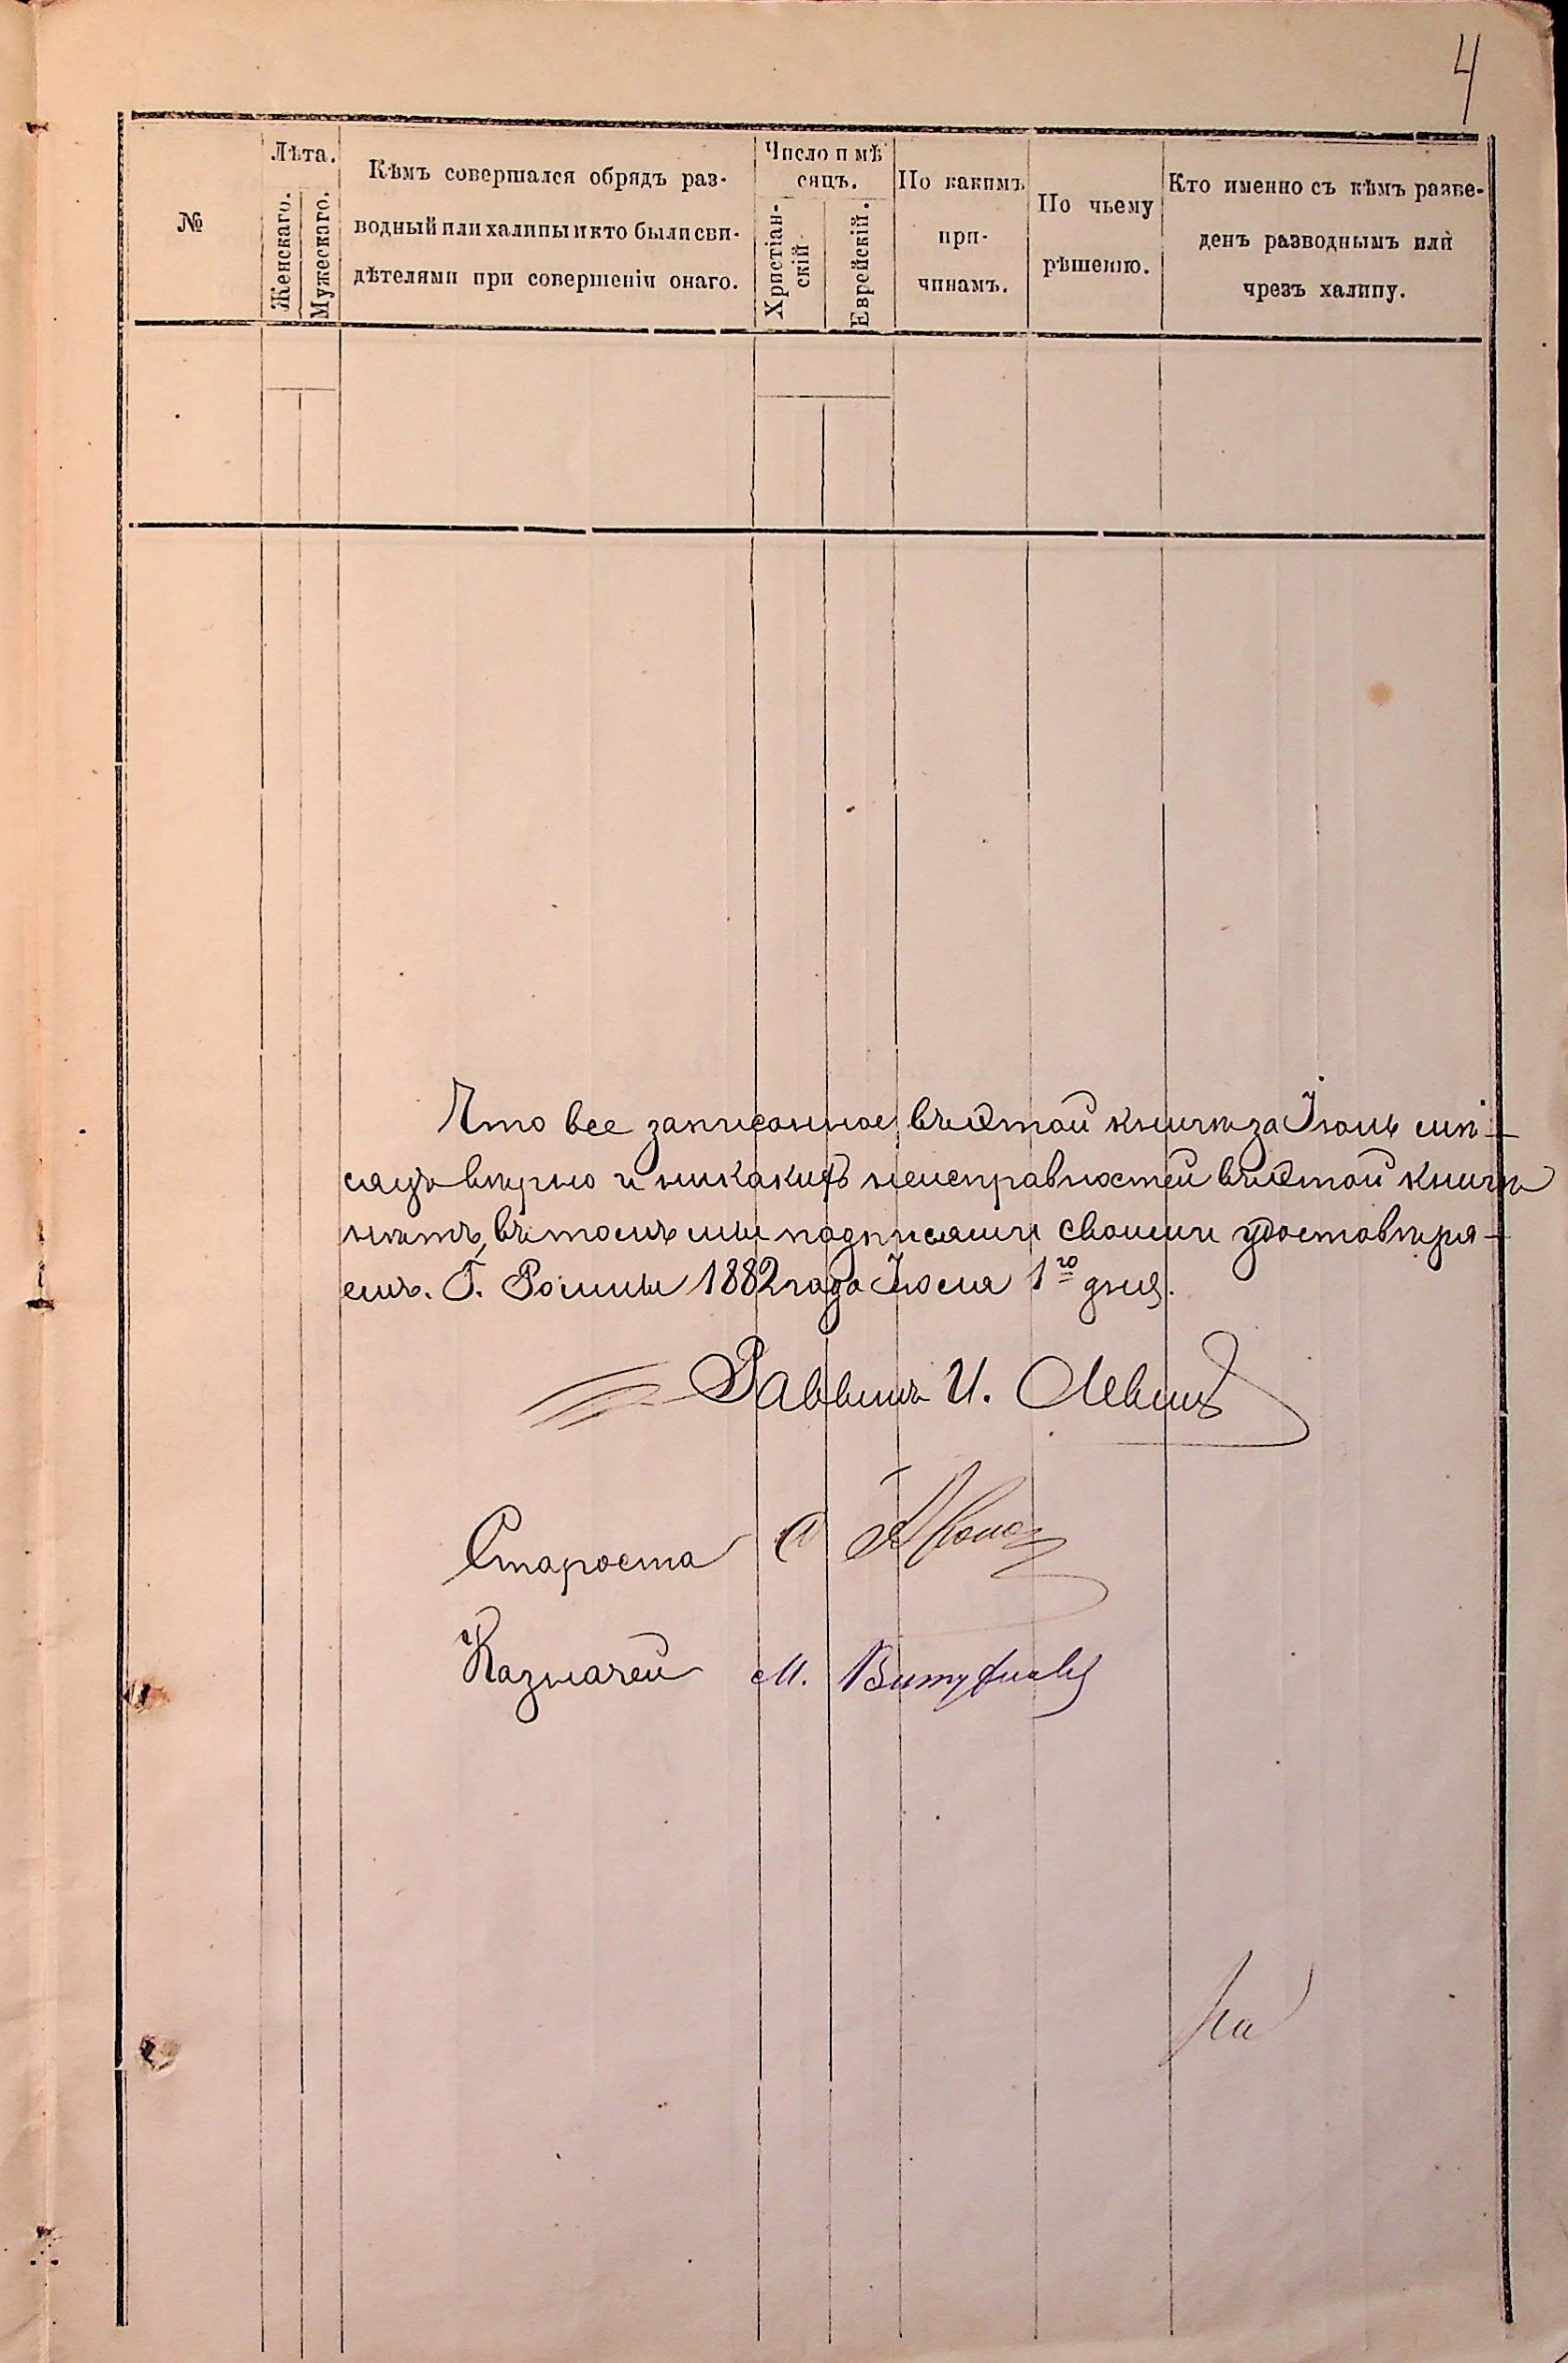 4
№
Лѣта.
Женскаго.
Мужескаго.
Кѣмъ совершался обрядъ раз-
водный или халицы и кто были сви-
дѣтелями при совершеніи онаго.
Число и мѣ
сяцъ.
Христіан-
скій
Еврейскій.
По какимъ
при-
чинамъ.
По чьему
рѣшенію.
Кто именно съ кѣмъ разве-
денъ разводнымъ или
чрезъ халицу.
Что все записанное въ этой книгѣ за Іюнь мѣ-
сяцъ вѣрно и никакихъ неисправностей въ этой книгѣ
нѣтъ, въ томъ мы подписями своими удостовѣря-
емъ. Г. Ромны 1882 года Іюля 1го дня.
Раввинъ И. Левинъ
Староста
Казначей М.